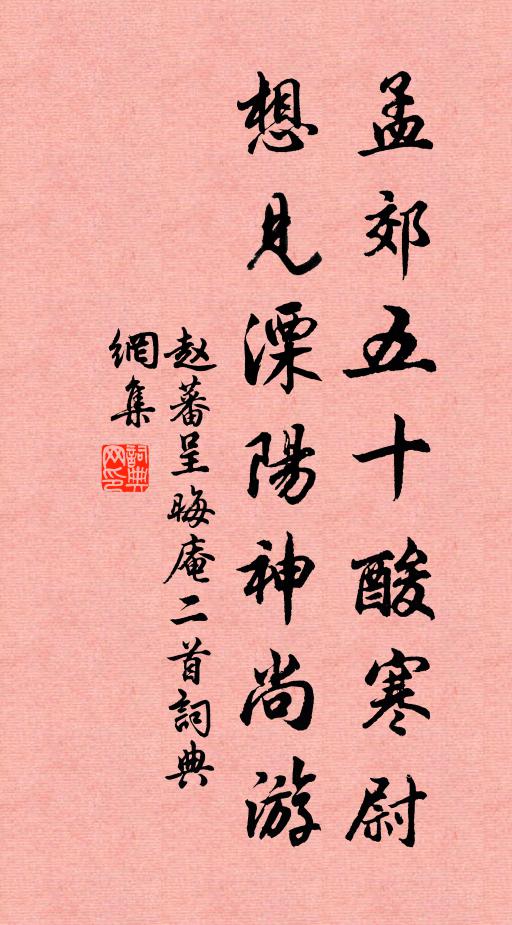 孟郊五十酸寒尉
想見溧陽神尚游
赵蕃呈晦庵二首詞典
網集
詞典
网印